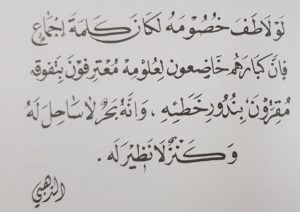 لَوْ لَاطَفَ خُصُومَهُ لَكَانَ كَلِمَةَ إِجْمَاعٍ
فَإِنَّ كِبَارَهُم خَاضِعُونَ لِعُلُومِهِ مُعْتَرِفُونَ بِتَفَوُّقِهِ
مُقِرُّونَ بِنُدُورِ خَطَئِهِ ، وَإِنَّهُ بَحْرٌ لَا سَاحِلَ لَهُ
وَكَنْزٌ لَا نَظِيرَ لَه .
الذهبي